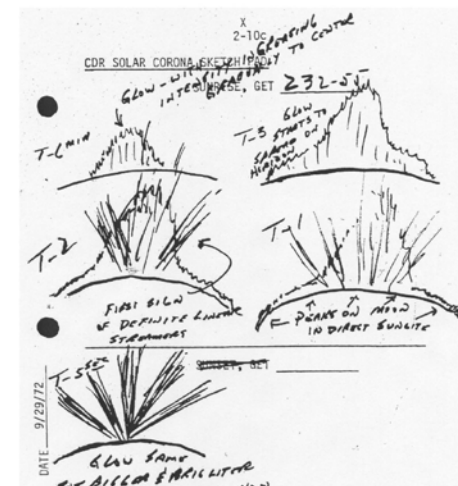 X
2-10c
CDR SOLAR CORONA SKETCH PAD
GLOW - WITH INCREASING
INTENSITY TO CENTER
SUNRISE, GET 232-55
T-6 MIN
T-3 GLOW
STARTS TO
SPREAD ON
HORIZON
T-2
T-1
FIRST SIGN
OF DEFINITE LINEAR
STREAMERS
PEAKS ON MOON
IN DIRECT SUNLITE
SUNSET, GET
T-5 SEC
DATE 9/29/72
GLOW SAME
BIGGER & BRIGHTER